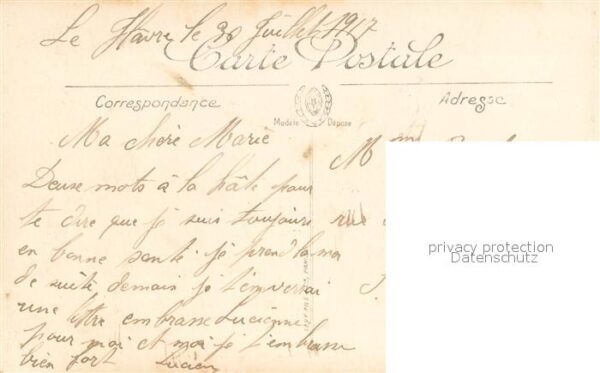 Le Hâvre le 30 Juillet 1917
Carte Postale
Correspondance
Adresse
Modèle Déposé
Ma chere Marie
M
Deux mots à la hâte pour
te dire que je suis toujours
rue
en bonne santé je prend la
de suite demain je t'enverrai
une lettre embrasse Lucienne
pour moi et moi je t'embrasse
bien fort Lucien
privacy protection
Datenschutz